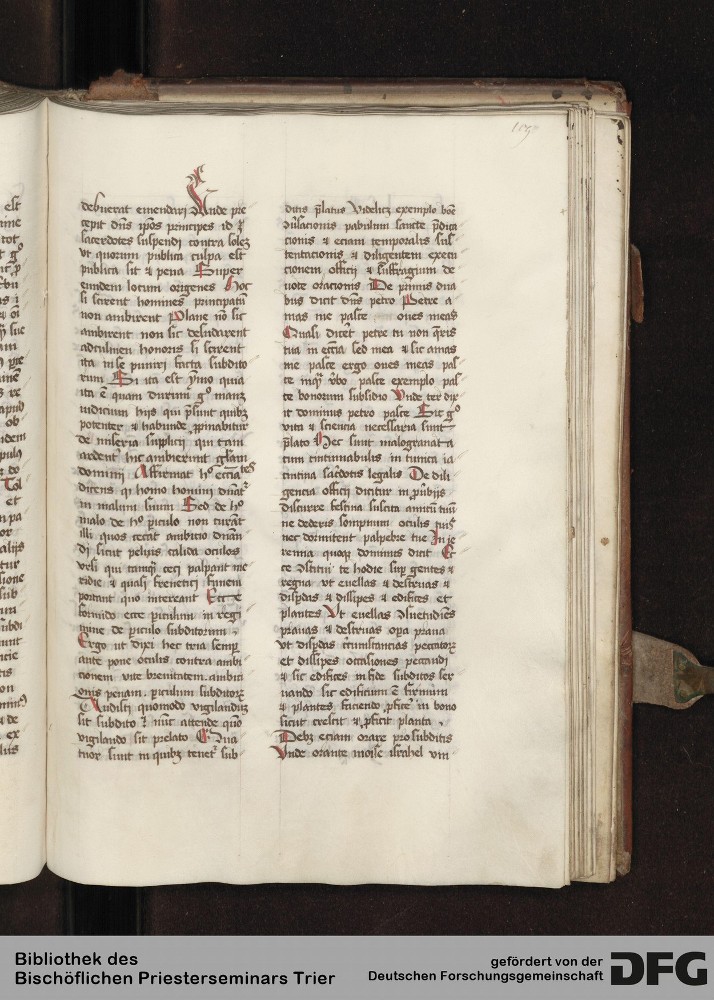 debuerat emendari Unde pre
cepit dns ipos principes id ⁊
sacerdotes suspendi contra solez
vt quorum publica culpa est
publica sit ⁊ pena Super
eundem locum origenes Hoc
si scirent homines principatu
non ambirent Plane no sic
ambirent non sic
honoris si scirent
ita se puniri facta subdito
rum Si ita est ymo quia
ita e quam durum g° manz
iudicium hijs qui psunt quibz
potenter ⁊ habunde
de miseria supplicij qui tam
ardent hic ambierunt gliam
domini Affirmat h° ecciastes
dicens qi homo homini dnat
in malum suum Sed de h°
malo de h° piculo non curat
illi quos cecat ambicio dnan
di sicut peluis calida oculos
vrsi qui tamqz ceci palpant me
ridie ⁊ quasi frenetici funem
portant quo intereant Ecce
formido ecce piculum in regi
mine de piculo subditorum
Ergo ut dixi hec tria semp
ante pone oculis contra ambi
cionem vite breuitatem ambici
onis penam piculum subditorz
Audisti quomodo vigilanduz
sit subdito ⁊ nuc attende quo
vigilando sit prelato Qua
tuor sunt in quibz tenet sub
ditis platus Videlicz exemplo boe
pabulum sancte pdica
cionis ⁊ eciam temporalis sus
tentacionis ⁊ diligentem execu
cionem officij ⁊ suffragium de
uote oracionis De primis dua
bus dicit dns petro Petre a
mas me pasce oues meas
Quasi dicet petre tu non qris
tua in eccia sed mea ⁊ sic amas
me pasce ergo oues meas pas
ce vbo pasce exemplo pas
ce bonorum subsidio Unde ter dix
it dominus petro pasce Sic g°
vita ⁊ sciencia necessaria sunt
plato Hec sunt malogranata
cum tintinnabulis in tunica ia
cintina sacdotis legalis De dili
gencia officij dicitur in pubijs
Discurre festina suscita amicu tuu
ne dederis sompnum oculis tuis
nec dormitent palpebre tue In ie
remia quoqz dominus dicit Ec
ce te hodie sup gentes ⁊
regna vt euellas ⁊ destruas ⁊
dispdas ⁊ dissipes ⁊ edifices et
plantes Ut euellas
prauas ⁊ destruas opa praua
vt dispdas circumstancias peccatorz
et dissipes occasiones peccandi
⁊ sic edifices in fide subditos ser
uando sic edificium e firmum
⁊ plantes faciendo pfice in bono
sicut crescit ⁊ pficit planta
Debz eciam orare pro subditis
Unde orante moise israhel vin
Bibliothek des
Bischöflichen Priesterseminars Trier
gefördert von der
Deutschen Forschungsgemeinschaft
DFG